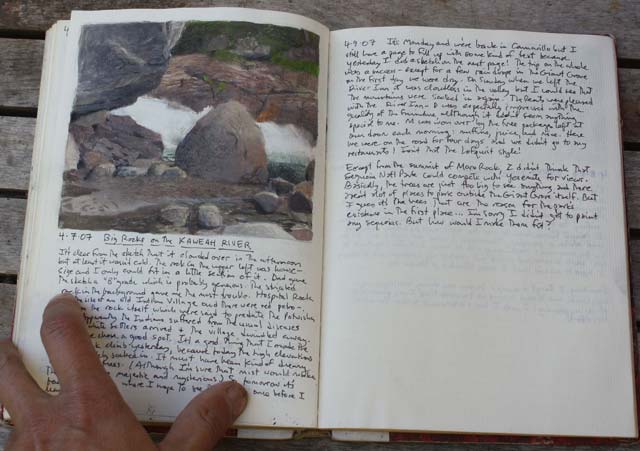 4
4.7.07 Big Rocks on the KAWEAH RIVER
It's clear from the sketch that it clouded over in the afternoon
but at least it wasn't cold. The rock in the upper left was house-
size and I only could fit in a little section of it. Dad gave
the sketch a "B" grade which is probably generous. The striated
rock in the background gave me the most trouble. Hospital Rock
was the site of an old Indian Village and there were red picto-
on the rock itself which were said to predate the Potwisha
Indians suffered from the usual diseases
white settlers arrived & the village dwindled away.
chose a good spot. It's a good thing that I made the
climb yesterday, because today the high elevations
socked in. It must have been kind of dreamy
trees. (Although I'm sure that mist would make
majestic and mysterious.) So tomorrow it's
where I hope to see once before I
4-9-07 It's Monday and we're back in Camarillo but I
still have a page to fill up with some kind of text because
yesterday I did a sketch on the next page! The trip on the whole
was a success - except for a few rain drops in the Grant Grove
on the first day we were dry. On Sunday when we left the
River Inn it was cloudless in the valley but I could see that
the mountains were socked in again. The Parents were pleased
with the River Inn - D was especially impressed with the
quality of the furniture although it hadn't seen anything
special to me. M was won over by the free package
own door each morning: muffins, juice and more. Here
we were on the road for four days and we didn't go to any
restaurants! Want that the Lofquist style!
Except from the summit of Moro Rock, I didn't think that
Sequoia Natl Park could compete with Yosemite for views.
Basically, the trees are just too big to see anything, and there
aren't alot of places to park outside the Giant Grove itself. But
I guess it's the trees that are the reason for the park's
existence in the first place... I'm sorry I didn't get to paint
any sequoias. But how would I make them fit?